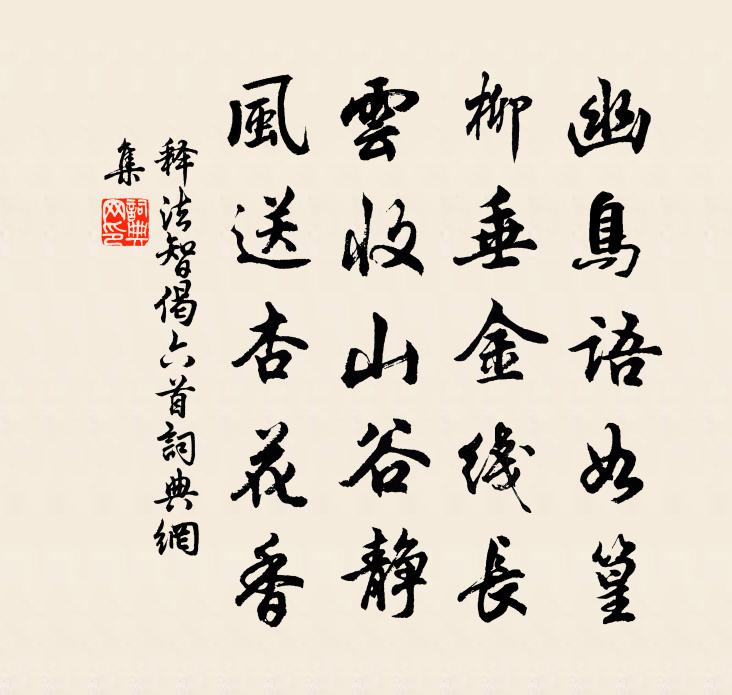 幽鳥語如篁
柳垂金綫長
雲收山谷靜
風送杏花香
释法智偈六首詞典網
集
詞典网印